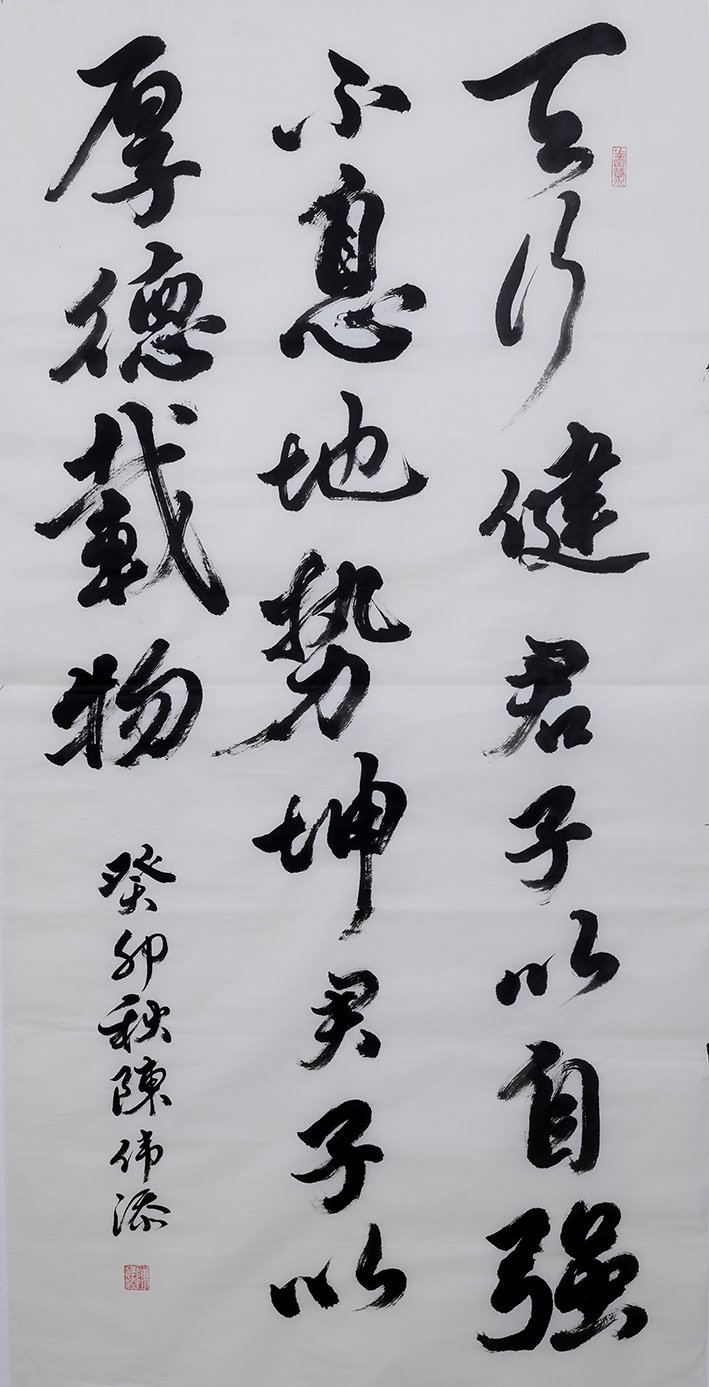 天行健君子以自强
不息地势坤君子以
厚德载物
癸卯秋陈伟添